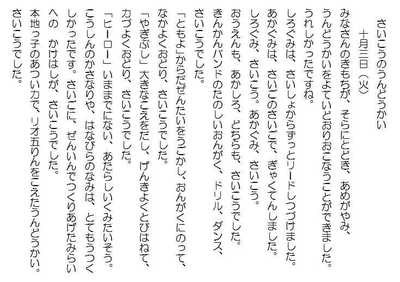 さいこうのうんどうかい
十月三日（火）
みなさんのきもちが、そらにとどき、あめがやみ、
うんどうかいをよていどおりおこなうことができました。
うれしかったですね。
しろぐみは、さいしょからずっとリードしつづけました。
あかぐみは、さいごのさいごで、ぎゃくてんしました。
しろぐみ、さいこう。あかぐみ、さいこう。
おうえんも、あかしろ、どちらも、さいこうでした。
きんかんバンドのたのしいおんがく、ドリル、ダンス、
さいこうでした。
「ともよ」からだぜんたいをうごかし、おんがくにのって、
なかよくおどり、さいこうでした。
「やぎぶし」大きなこえをだし、げんきよくとびはねて、
力づよくおどり、さいこうでした。
「ヒーロー」いままでにない、あたらしいくみたいそう。
こうしんのかさなりや、はなびらのなみは、とてもうつく
しかったです。さいごに、ぜんいんでつくりあげたみらい
への かけはしが、さいこうでした。
本地っ子のあついカで、リオ五りんをこえたうんどうかい。
さいこうでした。